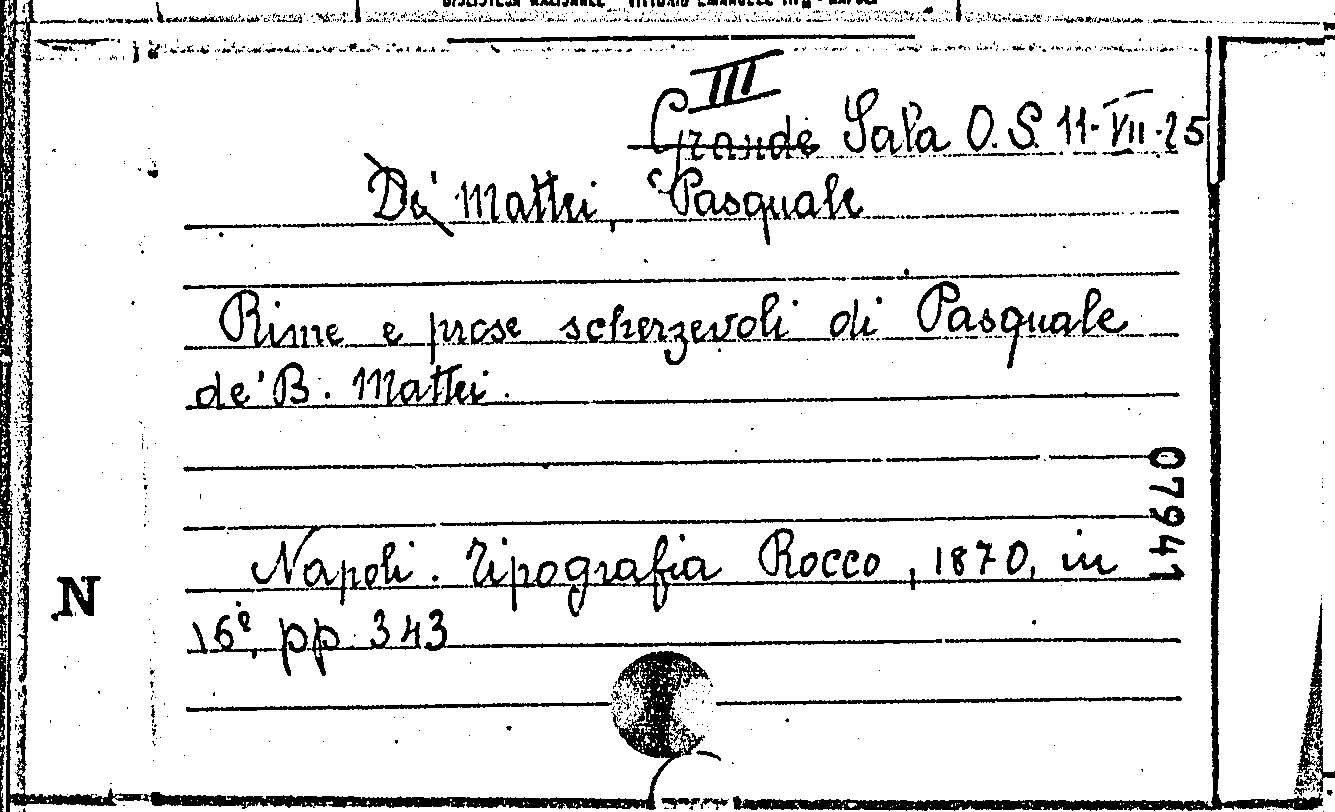 BIBLIOTECA NAZIONALE "VITTORIO EMANUELE III" - NAPOLI
III
Grande Sala O.S. 11-VII-25
De' Mattei, Pasquale
Rime e prose scherzevoli di Pasquale
de' B. Mattei.
07941
Napoli. Tipografia Rocco, 1870, in
16°, pp. 343
N